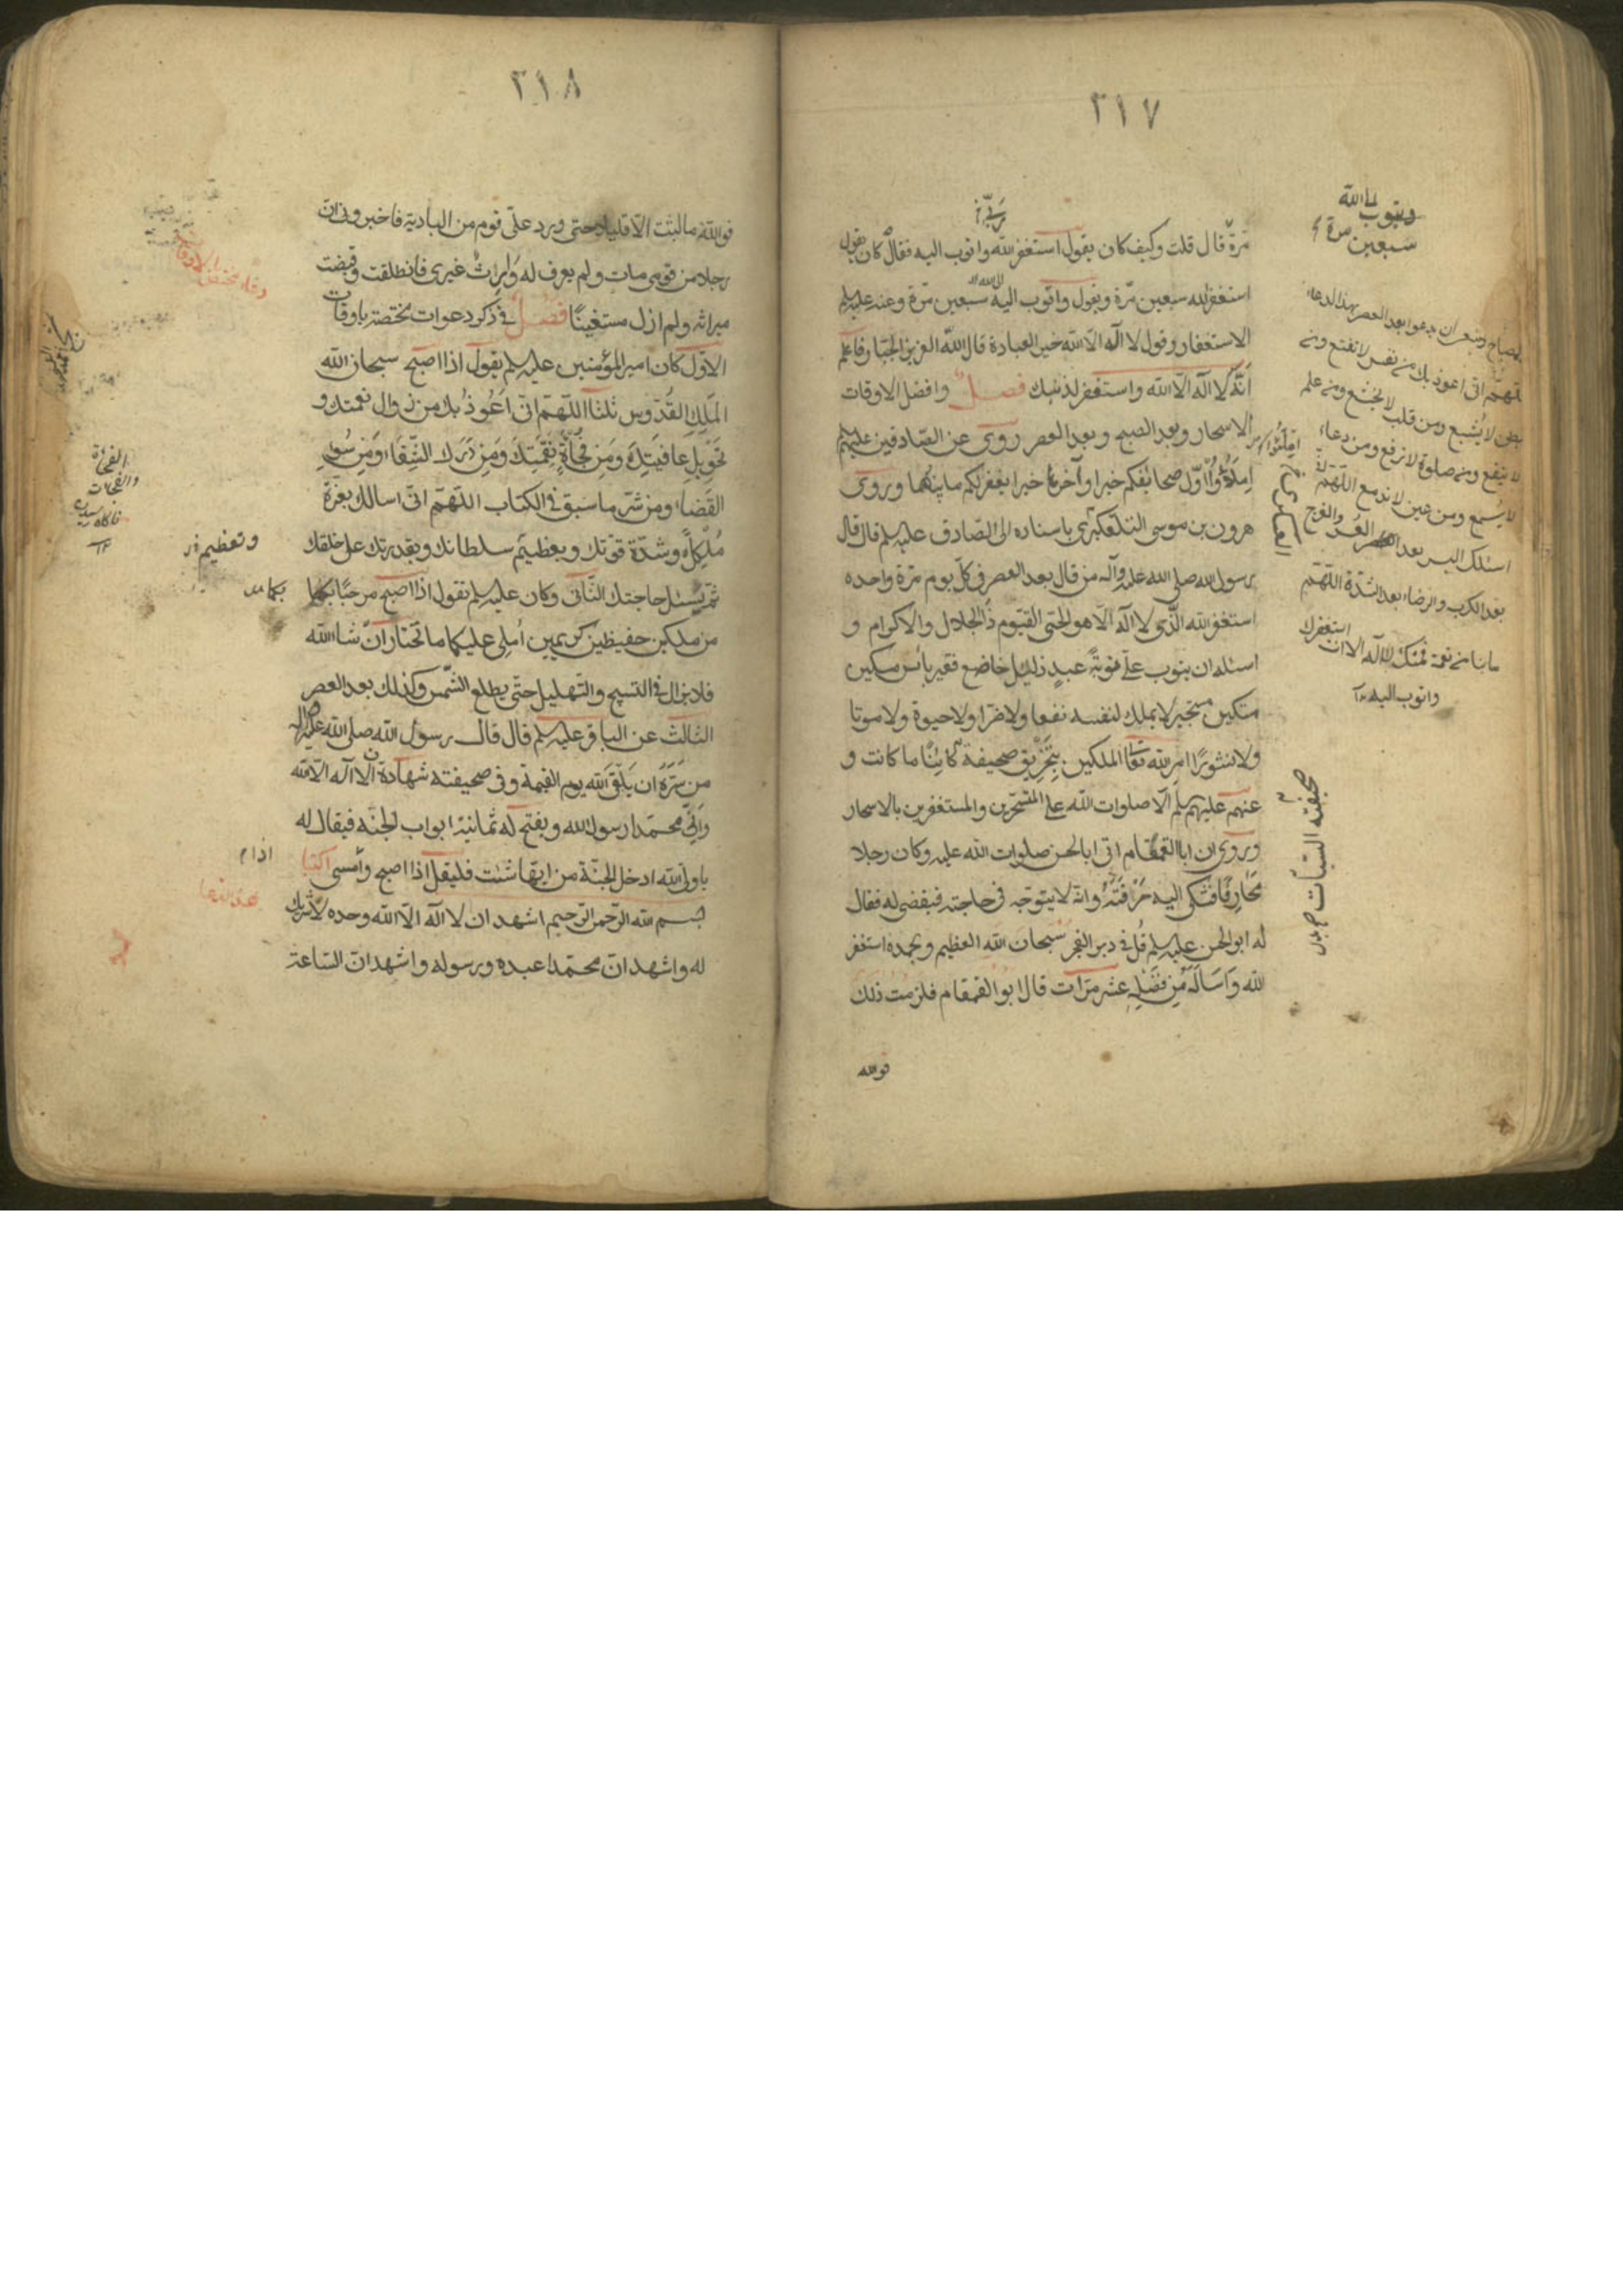 ٢١٧
مرة قال قلت وكيف كان يقول استغفر الله واتوب اليه فقال كان يقول
استغفر الله سبعين مرّة ويقول واتوب الى الله سبعين مرّة وعنه عليه السلم
الاستغفار وقول لا اله الا الله خير العبادة قال الله العزيز الجبار فاعلم
انّه لا اله الا الله واستغفر لذنبك فصل وافضل الاوقات
الاسحار وبعد الصبح وبعد العصر روى عن الصادقين عليهم
املؤا اوّل صحائفكم خيرا وآخرها خيرا يغفر لكم ما بينهما وروى
هرون بن موسى التلعكبرى باسناده الى الصادق عليه السلم قال قال
رسول الله صلى الله عليه وآله من قال بعد العصر فى كل يوم مرة واحده
استغفر الله الذى لا اله الا هو الحى القيوم ذا الجلال والاكرام و
اسئله ان يتوب علىّ توبة عبد ذليل خاضع فقير بائس مسكين
مستكين مستجير لا يملك لنفسه نفعا ولا ضرا ولا حيوة ولا موتا
ولا نشورًا امر الله تعا الملكين بتخريق صحيفته كائنا ما كانت و
عنهم عليهم السلم الا صلوات الله على المتسحرين والمستغفرين بالاسحار
وروى ان ابا القمقام اتى ابا الحسن صلوات الله عليه وكان رجلا
محارفا فشكى اليه حرفته وانّه لا يتوجه فى حاجته فيقضى له فقال
له ابو الحسن عليه السلم قل فى دبر الفجر سبحان الله العظيم وبحمده استغفر
الله واساله من فضله عشر مرّات قال ابو القمقام فلزمت ذلك
فو الله
ويتوب الى الله
سبعين مرة
وينبغى ان يدعو بعد العصر بهذا الدعاء
اللهمّ انى اعوذ بك من نفس لا تقنع ومن
بطن لا يشبع ومن قلب لا يخشع ومن علم
لا ينفع ومن صلوة لا ترفع ومن دعاء
لا يسمع ومن عين لا تدمع اللهمّ انى
اسئلك اليسر بعد العسر والفرج
بعد الكرب والرخاء بعد الشدّة اللهمّ
ما بنا من نعمة فمنك لا اله الا انت استغفرك
واتوب اليك
صحيفته السيئات
٢١٨
فو الله ما لبثت الا قليلا حتى ورد علىّ قوم من البادية فاخبرونى ان
رجلا من قومى مات ولم يعرف له وارث غيرى فانطلقت وقبضت
ميراثه ولم ازل مستغنيًا فصل فى ذكر دعوات مختصة باوقات
الاوّل كان امير المؤمنين عليه السلم يقول اذا اصبح سبحان الله
الملك القدّوس ثلثا اللهمّ انّى اعوذ بك من زوال نعمتك و
تحويل عافيتك ومن فجأة نقمتك ومن درك الشقاء ومن سوء
القضاء ومن شرّ ما سبق فى الكتاب اللهمّ انّى اسالك بعزّة
ملكك وشدّة قوّتك وبعظيم سلطانك وبقدرتك على خلقك
ثمّ يسئل حاجتك الثّانى وكان عليه السلم يقول اذا اصبح مرحبًا بكما
من ملكين حفيظين كريمين املى عليكما ما تختاران شاء الله
فلا يزال فى التسبيح والتهليل حتّى يطلع الشّمس وكذلك بعد العصر
الثالث عن الباقر عليه السلم قال قال رسول الله صلى الله عليه وآله
من سرّه ان يلقى الله يوم القيمة وفى صحيفته شهادة ان لا اله الا الله
وانّى محمّدا رسول الله ويفتح له ثمانية ابواب الجنّة فيقال له
يا ولىّ الله ادخل الجنّة من ايّها شئت فليقل اذا اصبح وامسى اكتبا
بسم الله الرّحمن الرّحيم اشهد ان لا اله الا الله وحده لا شريك
له واشهد انّ محمّدا عبده ورسوله واشهد انّ السّاعة
الفجأة
والفجات
وتعظيم
بكما
اذا